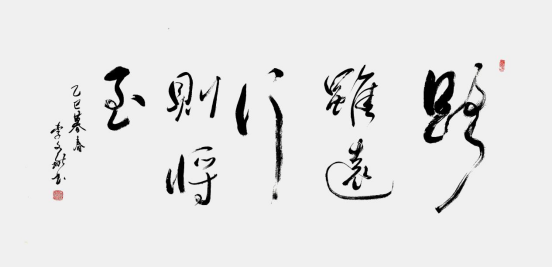 路
雖遠
行
則將
至
乙巳暮春
李文